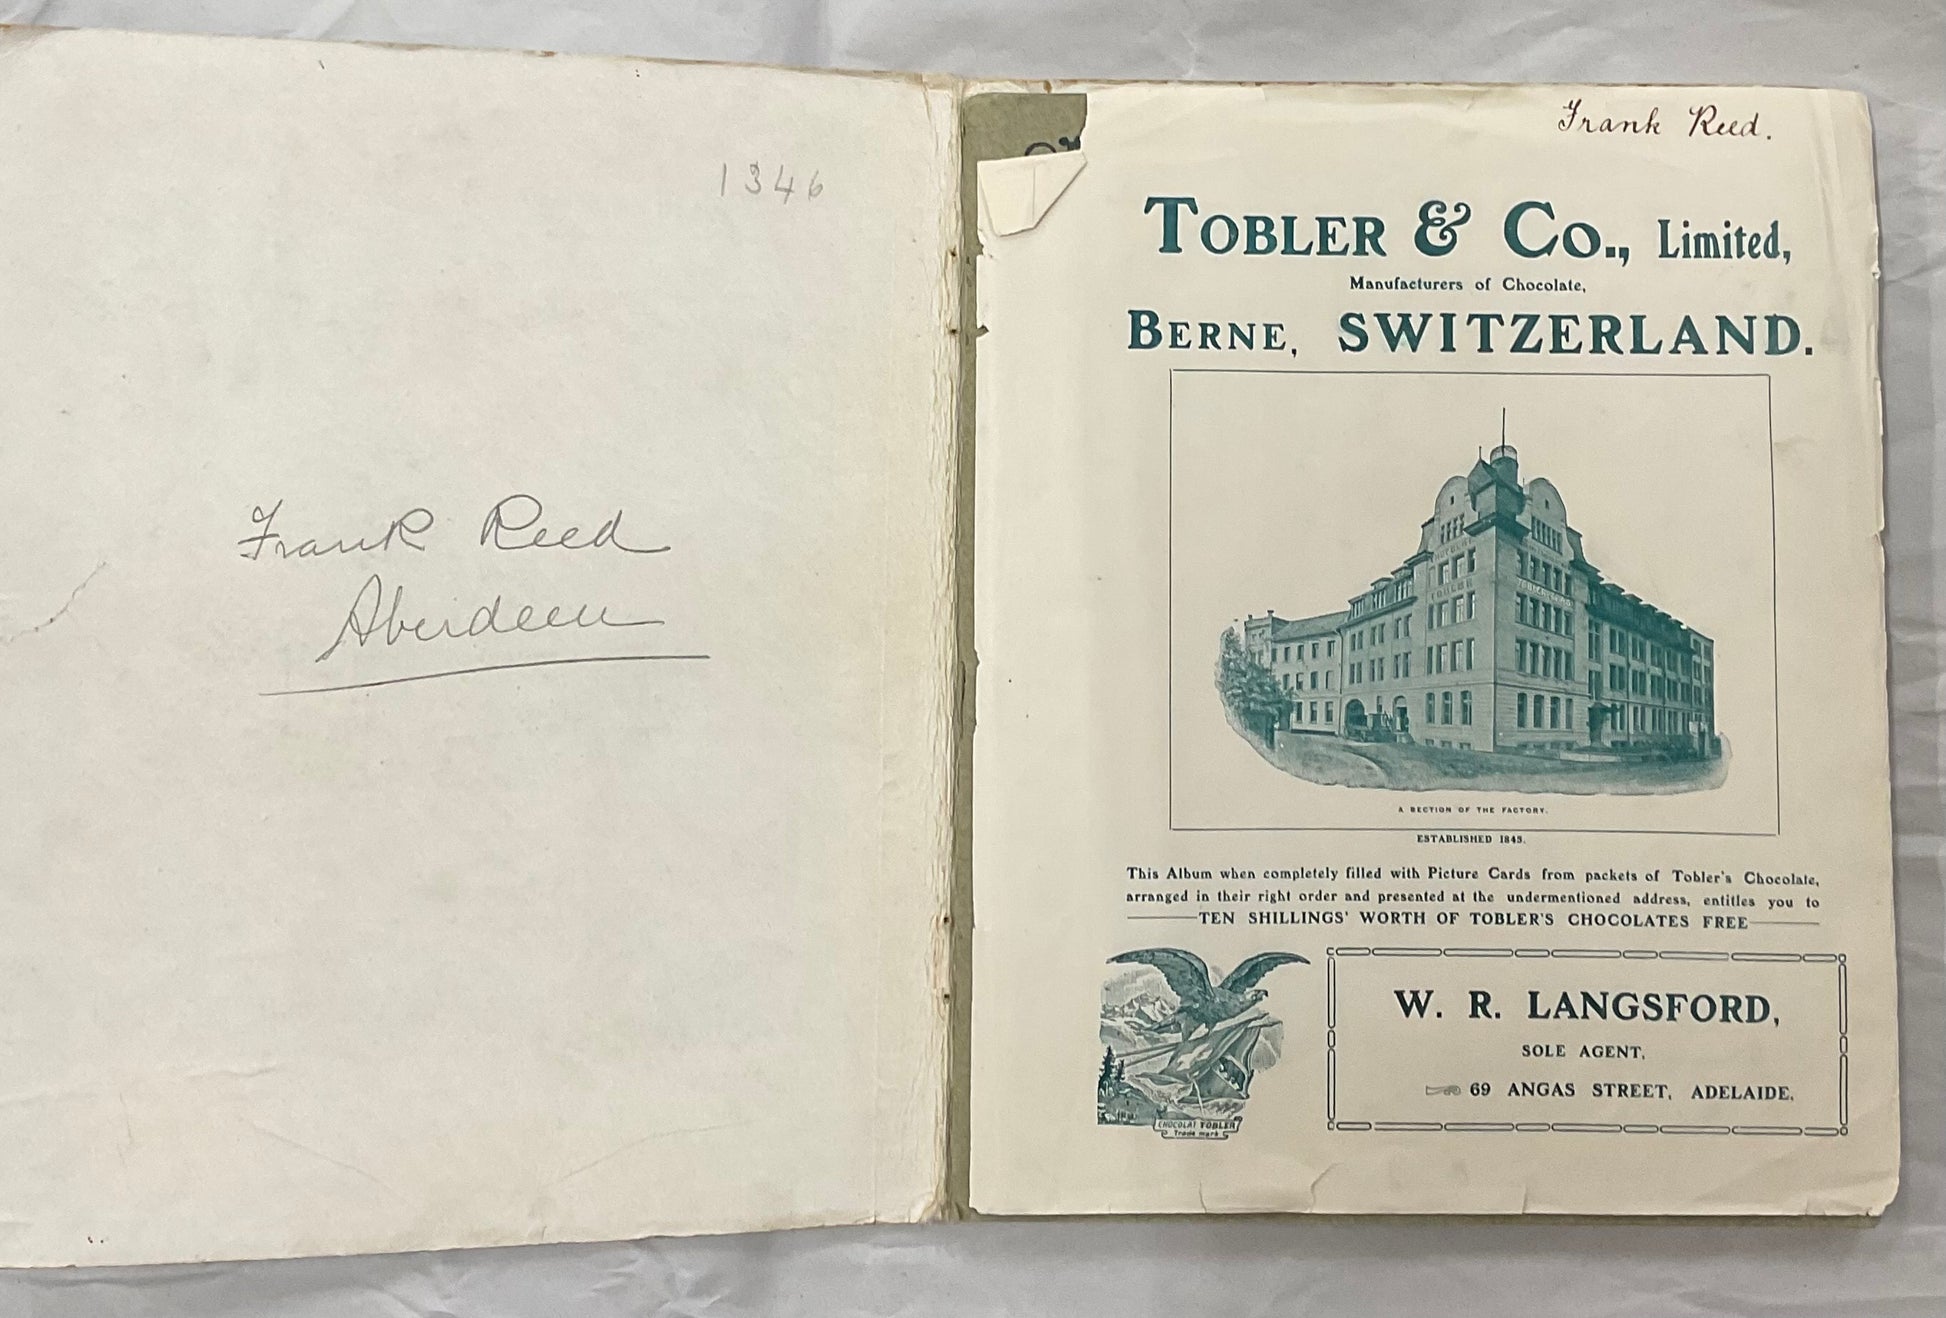 1346
Frank Reed
Aberdeen
Frank Reed.
TOBLER & CO., Limited,
Manufacturers of Chocolate,
BERNE, SWITZERLAND.
TOBLER
A SECTION OF THE FACTORY.
ESTABLISHED 1845.
This Album when completely filled with Picture Cards from packets of Tobler's Chocolate,
arranged in their right order and presented at the undermentioned address, entitles you to
TEN SHILLINGS' WORTH OF TOBLER'S CHOCOLATES FREE
CHOCOLAT TOBLER
Trade mark
W. R. LANGSFORD,
SOLE AGENT,
69 ANGAS STREET, ADELAIDE.